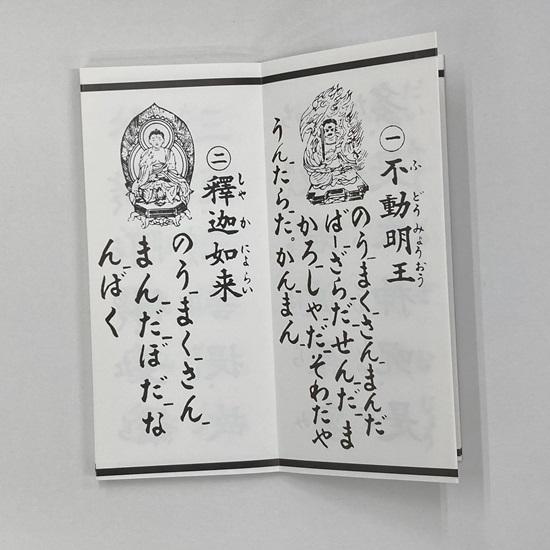 一
不動明王
ふどうみょうおう
のうまくさんまんだ
ばーざらだせんだま
かろしゃだそわたや
うんたらた。かんまん
二
釋迦如来
しゃかにょらい
のうまくさん
まんだぼだな
んばく